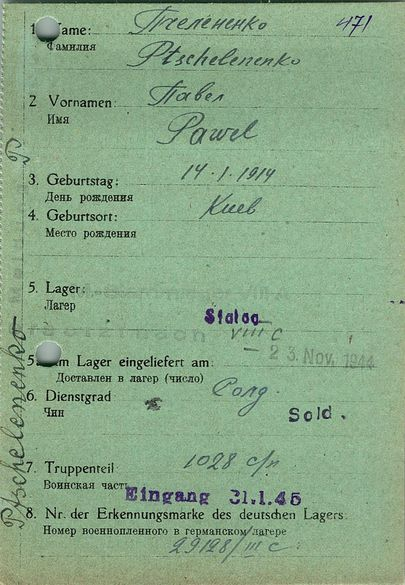 1. Name: Пчелененко 471
Фамилия
Ptschelenenko
2 Vornamen: Павел
Имя
Pawel
3. Geburtstag: 14.1.1914
День рождения
4. Geburtsort: Киев
Место рождения
5. Lager:
Лагер
Stalag
VIII C
23. Nov. 1944
5. Im Lager eingeliefert am:
Доставлен в лагер (число)
6. Dienstgrad Солд.
Чин
Sold.
7. Truppenteil: 1028 с/п
Воинская часть
Eingang 31.1.45
8. Nr. der Erkennungsmarke des deutschen Lagers:
Номер военнопленного в германском лагере
29128/III C
Ptschelenenko P.